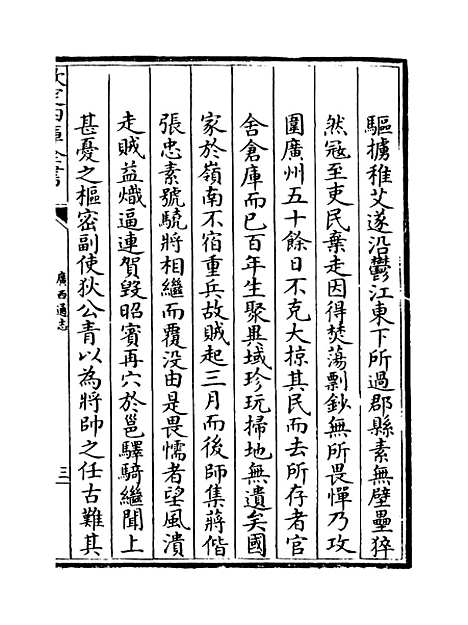 驅擄稚艾遂沿鬱江東下所過郡縣素無壁壘猝
然冦至吏民棄走因得焚蕩剽鈔無所畏憚乃攻
圍廣州五十餘日不克大掠其民而去所存者官
舍倉庫而已百年生聚異域珍玩掃地無遺矣國
家於嶺南不宿重兵故賊起三月而後師集蔣偕
張忠素號驍將相繼而覆没由是畏懦者望風潰
走賊益熾逼連賀毀昭賓再穴於邕驛騎繼聞上
甚憂之樞密副使狄公青以為將帥之任古難其
欽定四庫全書
廣西通志
三